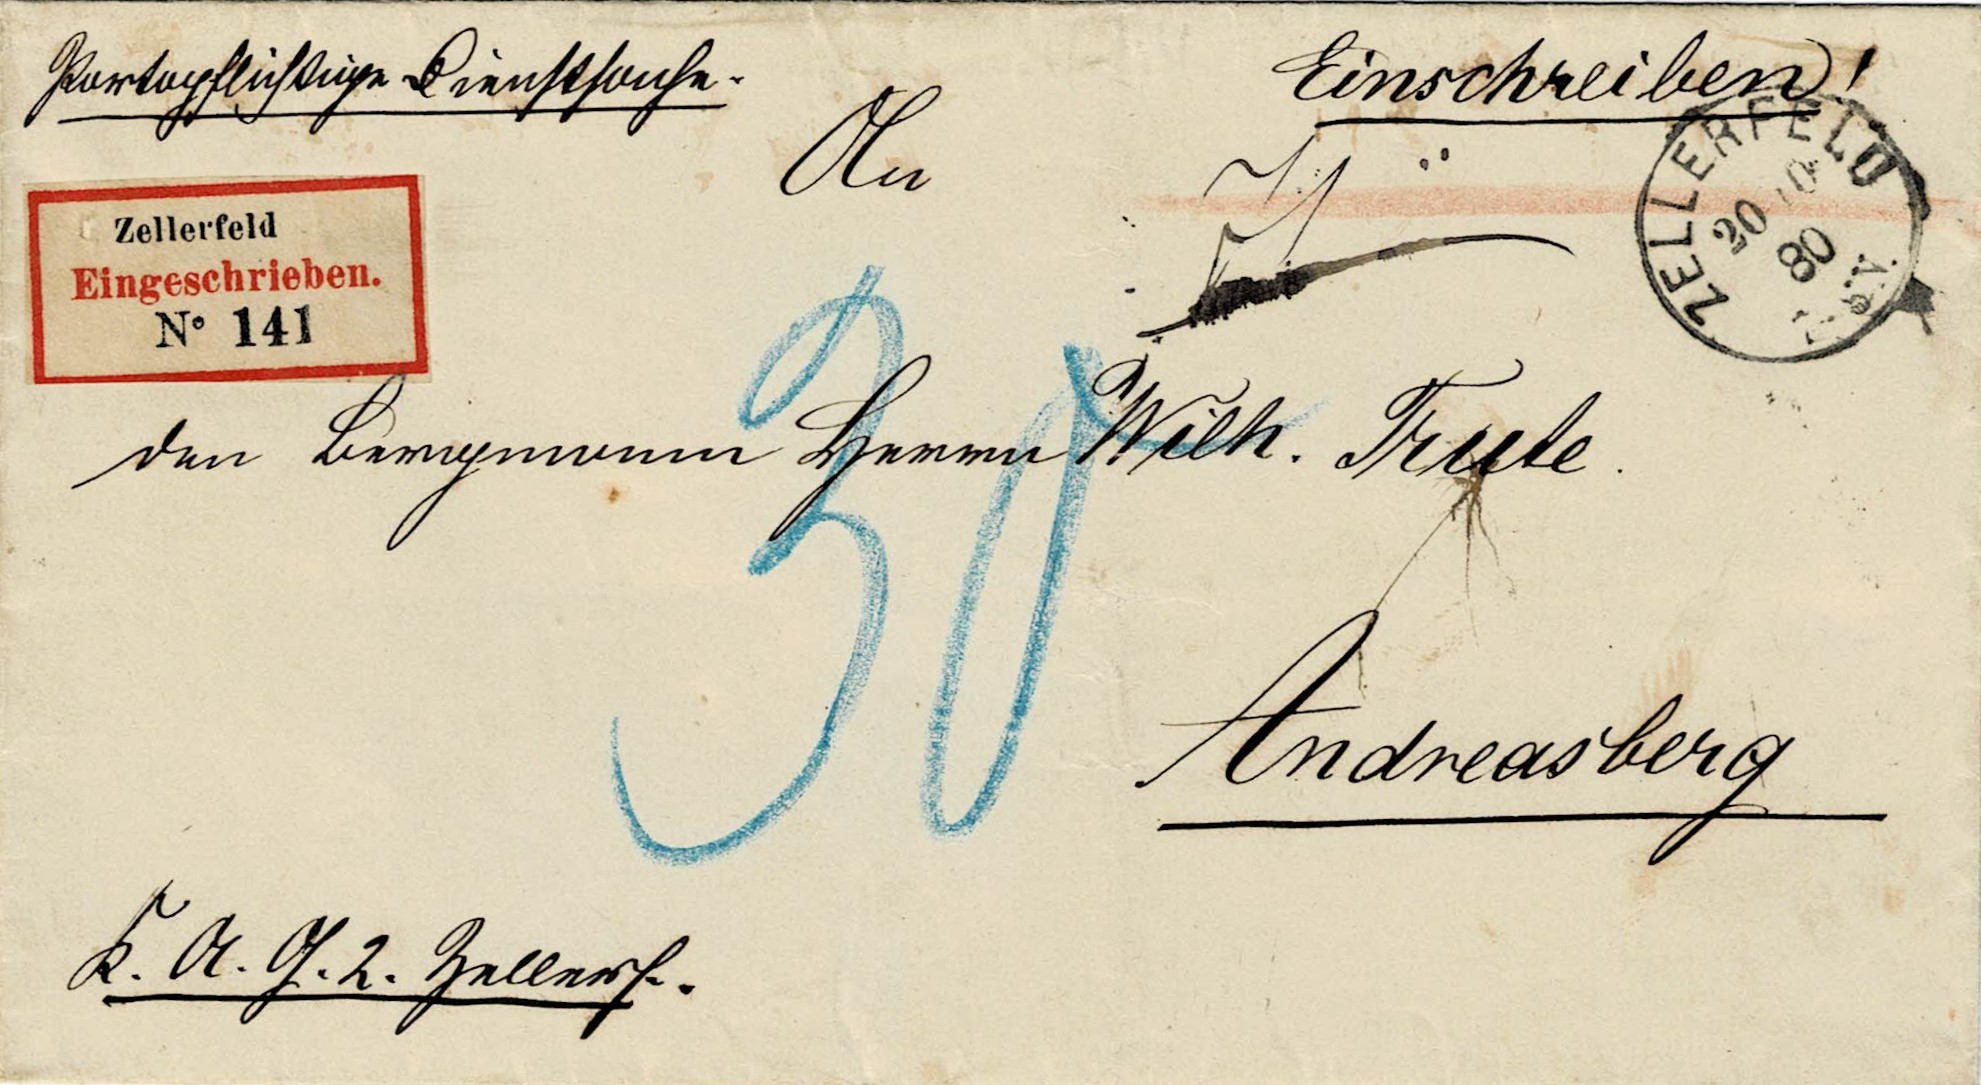 Portopflichtige Dienstsache.
Einschreiben!
An
Zellerfeld
Eingeschrieben.
N° 141
ZELLERFELD
20 10
80
V.
den Bergmann Herrn Wilh. Trute.
30
Andreasberg
K. A. G. 2. Zellerf.